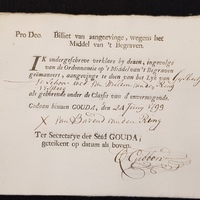 Pro Deo. Billet van aangeevinge, wegens het
Middel van 't Begraven.
IK ondergeschreven verklare by desen, ingevolge
van de Ordonnantie op 't Middel van 't Begraven
geëmaneert, aangevinge te doen van het Lyk van
als gehoorende onder de Classis van d'onvermogende.
Gedaan binnen GOUDA, den 24 Juny 1799
X van Barend van den
Ter Secretarye der Stad GOUDA,
geteikent op datum als boven.